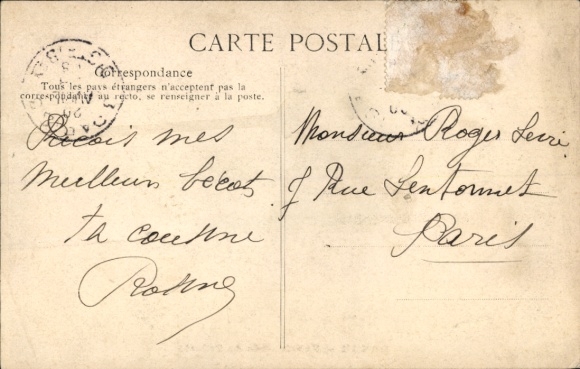 CARTE POSTALE
Correspondance
Tous les pays étrangers n'acceptent pas la
correspondance au recto, se renseigner à la poste.
Reçois mes
meilleurs bécots
ta cousine
Monsieur Roger
Rue
Paris